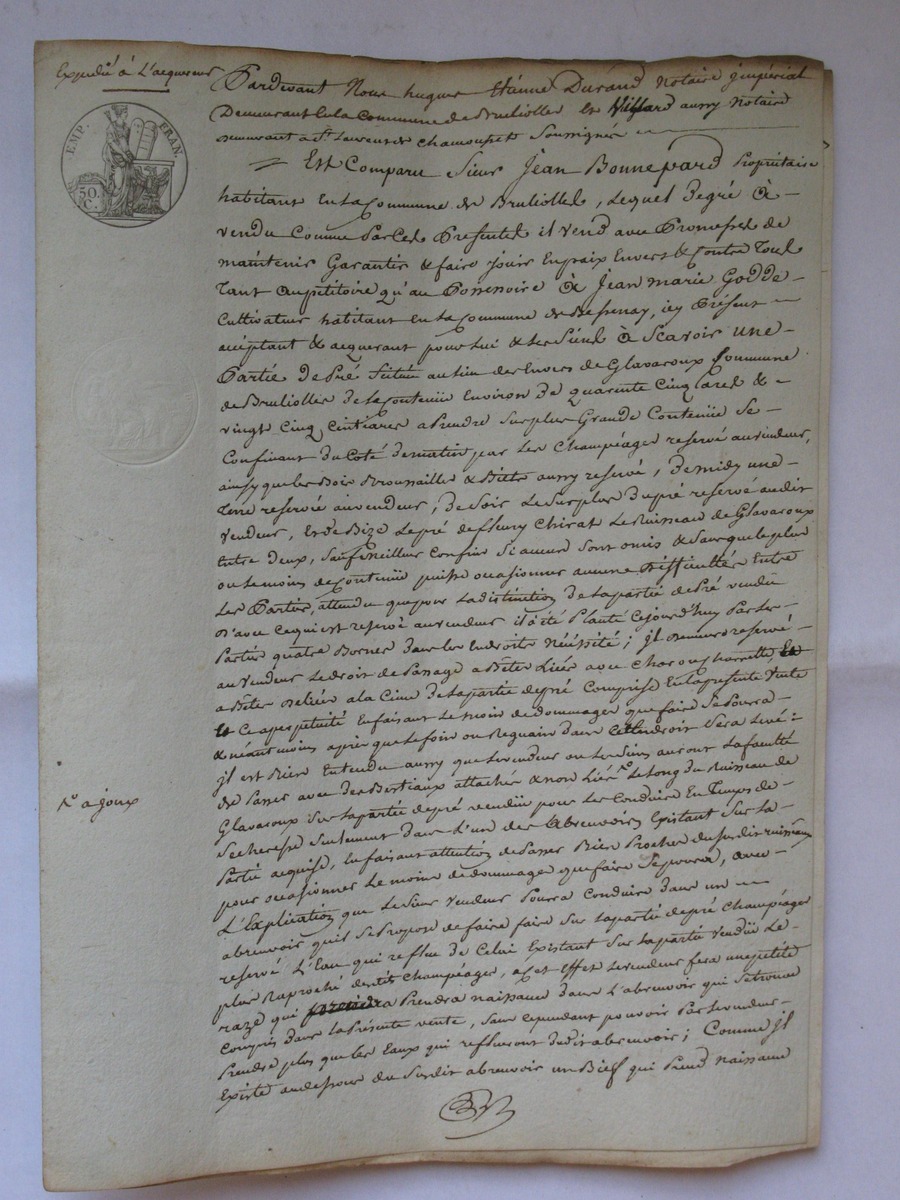 Expedié à L'acquereur
EMP. FRAN.
50. C.
Pardevant Nous hugues Etienne Durand Notaire jmpérial
Demeurant En la Commune de Brulliolles & Villard aussy Notaire
demeurant a St. Laurent de Chamousset Soussignés
= Est Comparu Sieur Jean Bonnepard Propriétaire
habitant En la Commune de Brulliolles, Lequel degré à
vendu Comme Par Ces Presentes il vend avec Promesses de
maintenir Garantir & faire jouir En paix Envers & Contre Tous
Tant au petitoire qu'au Possessoire à Jean marie Godde
Cultivateur habitant En la Commune de Bessenay, icy Présent
acceptant & acquerant pour Lui & les Siens à Scavoir une
Partie de Pré Située au lieu des Envers de Glavaroux Commune
de Brulliolles de la Contenüe Environ de quarente Cinq ares &
vingt Cinq Centiares a Prendre Sur plus Grande Contenüe Se
Confinant du Coté de matin par les Champéages reservé au vendeur,
ainsy que les Bois Broussailles & aussy reservé, de midy une
Terre reservée au vendeur, de Soir Le Surplus du pré reservé audit
vendeur, Et de Bize Le pré de fleury Chirat Le Ruisseau de Glavaroux
Entre deux, Sauf meilleurs Confins Si aucuns Sont omis & Sans que le plus
ou Le moins de Contenüe puisse occasionner aucune difficultés Entre
Les Parties, attendu que pour La distinction de La partie de Pré vendüe
d'avec Ce qui est reservé au vendeur il a été Planté Cejourd'huy Par Les
Parties quatre Bornes dans les Endroits Nécéssité; jl demeure reservé
au vendeur Le droit de Passage a Bêtes Liées avec Char ou Charrette,
a Bêtes deliées a la Cime de La partie de pré Comprise En La présente vente
& Ce a perpétuité En faisant Le moins de dommages que faire Se Pourra
& néantmoins après que Le foin ou Reguain dans Cet Endroit Sera Levé:
jl est Bien Entendu aussy que Le vendeur ou Les Siens auront La faculté
de Passer avec des Bestiaux attachés & non Liés Le Long du Ruisseau de
Glavaroux Sur La partie de pré vendüe pour Les Conduire En Temps de
Secheresse Seulement dans L'un des abreuvoirs Existant Sur La
Partie acquise, En faisant attention de Passer Bien Proche du Susdit ruisseau
pour occasionner Le moins de dommages que faire Se pourra, avec
L'Explication que Le Sieur vendeur Pourra Conduire dans un
abreuvoir qu'il Se Propose de faire faire Sur La partie de pré Champéages
reservé L'Eau qui reflue de Celui Existant Sur La partie vendüe Le
plus Raproché desdits Champéages, a Cet Effet Le vendeur fera une petite
raze qui Prendra naissance dans L'abreuvoir qui Se trouve
Compris dans La Présente vente, Sans Cependant pouvoir Par Le vendeur
Prendre plus que les Eaux qui reflueront dudit abreuvoir; Comme jl
Existe au dessous du Susdit abreuvoir un Bief qui Prend Naissance